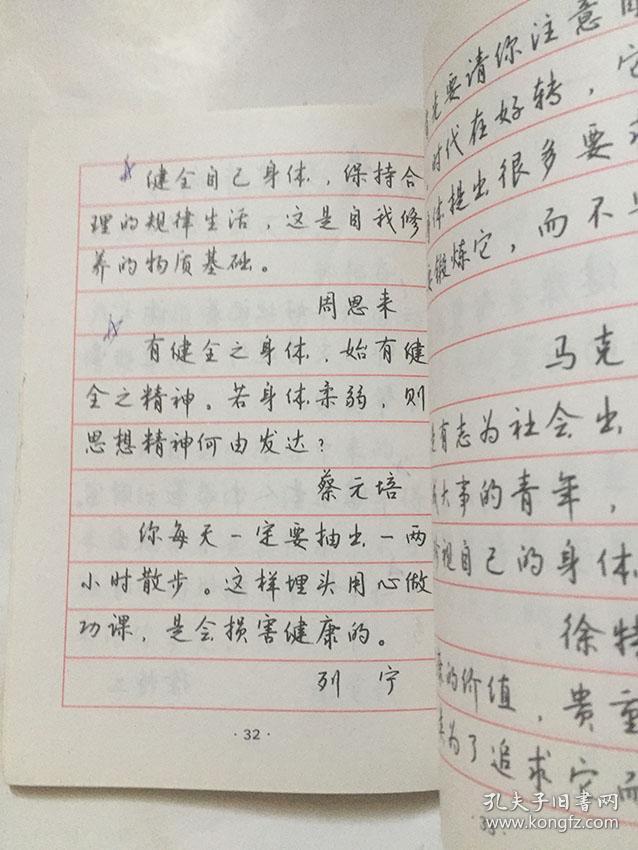 健全自己身体，保持合
理的规律生活，这是自我修
养的物质基础。
周恩来
有健全之身体，始有健
全之精神。若身体柔弱，则
思想精神何由发达？
蔡元培
你每天一定要抽出一两
小时散步。这样埋头用心做
功课，是会损害健康的。
列 宁
·32·
先要请你注意
时代在好转，它
体提出很多要求
锻炼它，而不
马克
有志为社会出
大事的青年，
视自己的身体
徐特
的价值，贵重
为了追求它而
孔夫子旧书网
www.kongfz.com